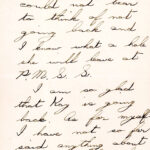 could not bear
to think of not
going back and
I know what a hole
she will leave at
P. M. S. S.
I am so glad
that Kay is going
back. As for myself
I have not so far
said anything about